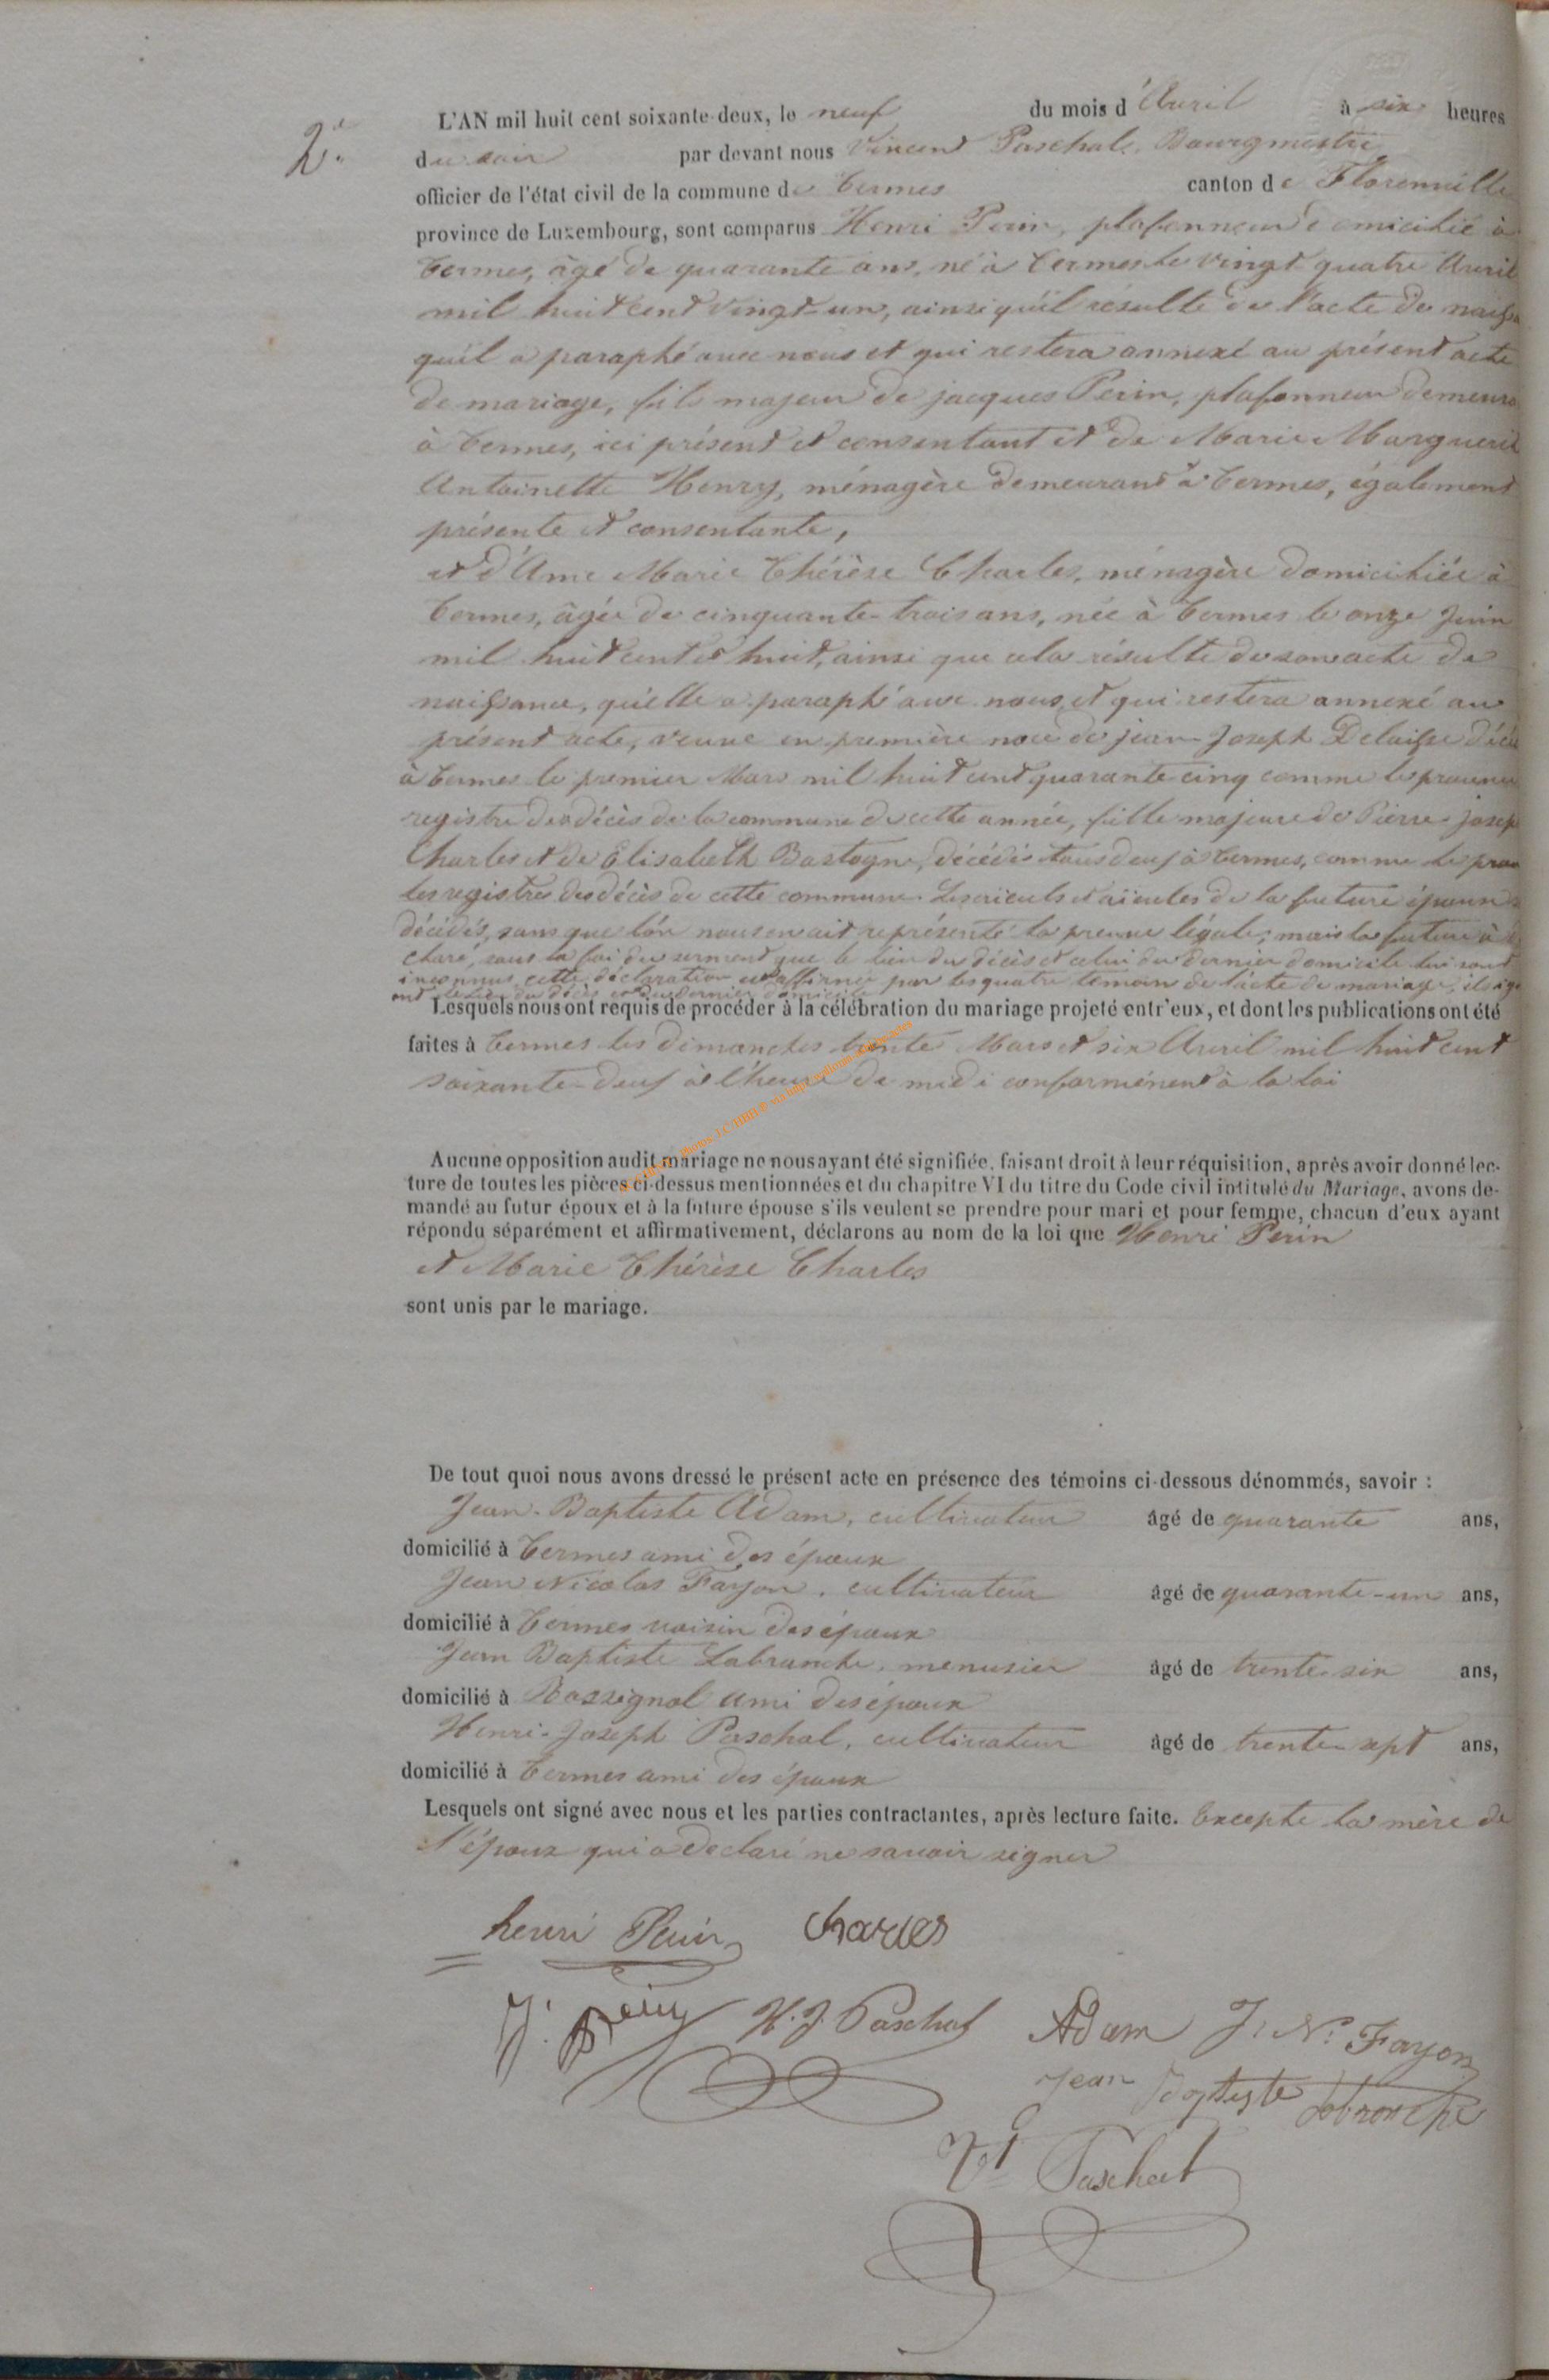 2e
L'AN mil huit cent soixante-deux, le neuf du mois d'Avril à six heures
du soir par devant nous Vincent Paschal, Bourgmestre
officier de l'état civil de la commune de Termes canton de Florenville
province de Luxembourg, sont comparus Henri Perin, plafonneur domicilié à
Termes, âgé de quarante ans, né à Termes le vingt quatre Avril
mil huit cent vingt-un, ainsi qu'il résulte de l'acte de naiss
qu'il a paraphé avec nous et qui restera annexé au présent acte
de mariage, fils majeur de jacques Perin, plafonneur demeura
à Termes, ici présent et consentant et de Marie Marguerit
Antoinette Henry, ménagère demeurant à Termes, également
présente et consentante,
et d'Ame Marie Thérèse Charles, ménagère domiciliée à
Termes, âgée de cinquante-trois ans, née à Termes le onze Juin
mil huit cent et huit, ainsi que cela résulte de son acte de
naissance, qu'elle a paraphé avec nous et qui restera annexé au
présent acte, veuve en première noce de jean-Joseph Delaisse décé
à Termes le premier Mars mil huit cent quarante cinq comme le
registre des décès de la commune de cette année, fille majeure de Pierre-josep
Charles et de Elisabeth Bastogne, décédés tous deux à Termes, comme le
les registres des décès de cette commune. Les aïeuls et aïeules de la future épouse
décédés, sans que l'on nous en ait représenté la preuve légale; mais la future à
claré, sous la foi du serment que le lieu du décès et celui du dernier domicile lui sont
inconnus, cette déclaration est affirmée par les quatre témoins de l'acte de mariage, ils
ont le lieu du décès et du dernier domicile
Lesquels nous ont requis de procéder à la célébration du mariage projeté entr'eux, et dont les publications ont été
faites à Termes les dimanches trente Mars et six Avril mil huit cent
soixante-deux à l'heure de midi conformément à la loi
Aucune opposition audit mariage ne nous ayant été signifiée, faisant droit à leur réquisition, après avoir donné lec-
ture de toutes les pièces ci-dessus mentionnées et du chapitre VI du titre du Code civil intitulé du Mariage, avons de-
mandé au futur époux et à la future épouse s'ils veulent se prendre pour mari et pour femme, chacun d'eux ayant
répondu séparément et affirmativement, déclarons au nom de la loi que Henri Perin
et Marie Thérèse Charles
sont unis par le mariage.
De tout quoi nous avons dressé le présent acte en présence des témoins ci-dessous dénommés, savoir :
Jean-Baptiste Adam, cultivateur âgé de quarante ans,
domicilié à Termes ami des époux
Jean Nicolas Fayon, cultivateur âgé de quarante-un ans,
domicilié à Termes voisin des époux
Jean Baptiste Labranche, menusier âgé de trente-six ans,
domicilié à Rossignol ami des époux
Henri-Joseph Paschal, cultivateur âgé de trente-sept ans,
domicilié à Termes ami des époux
Lesquels ont signé avec nous et les parties contractantes, après lecture faite. Excepté la mère de
l'époux qui a déclaré ne savoir signer
henri Perin Charles
J. Perin H. J. Paschal Adam J. N. Fayon
jean Baptiste Labranche
Vt Paschal